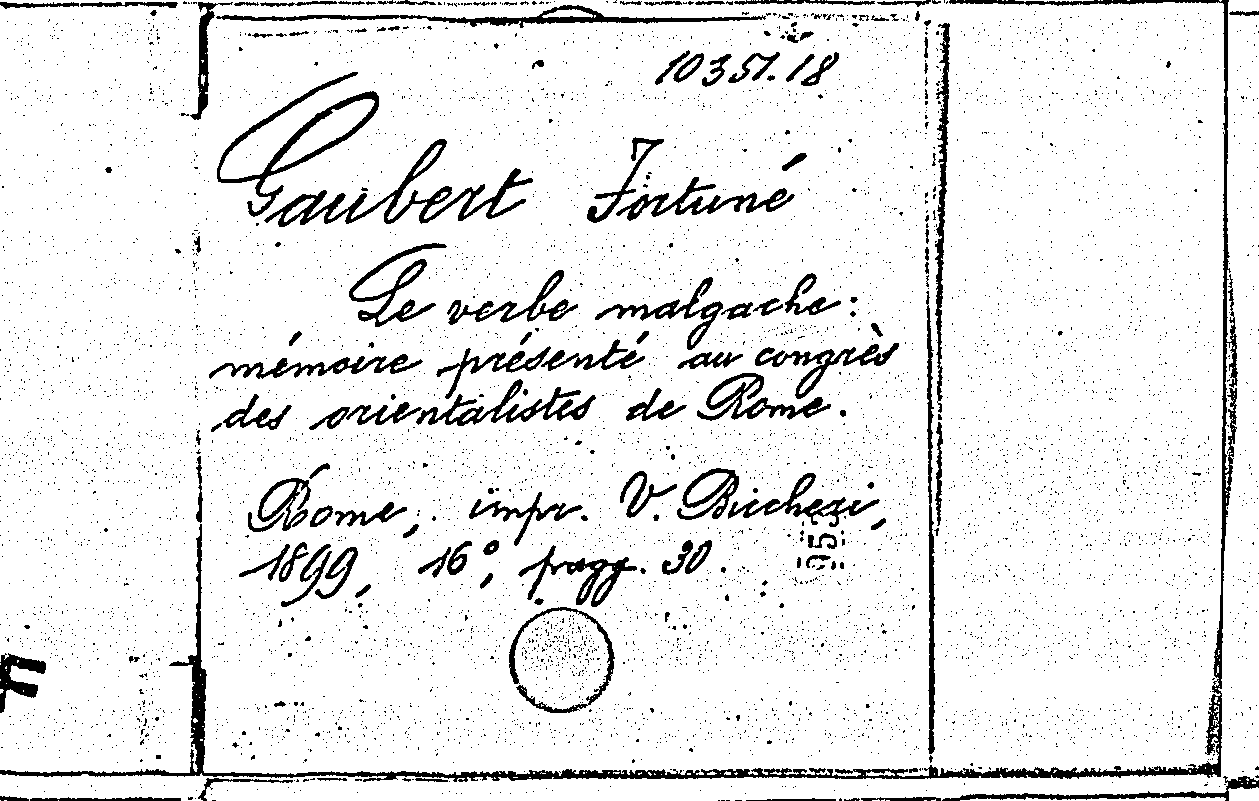 10351.18
Gaubert Fortuné
Le verbe malgache:
mémoire présenté au congrès
des orientalistes de Rome.
Rome, impr. V. Bicchezi,
1899, 16°, pagg. 30.
F